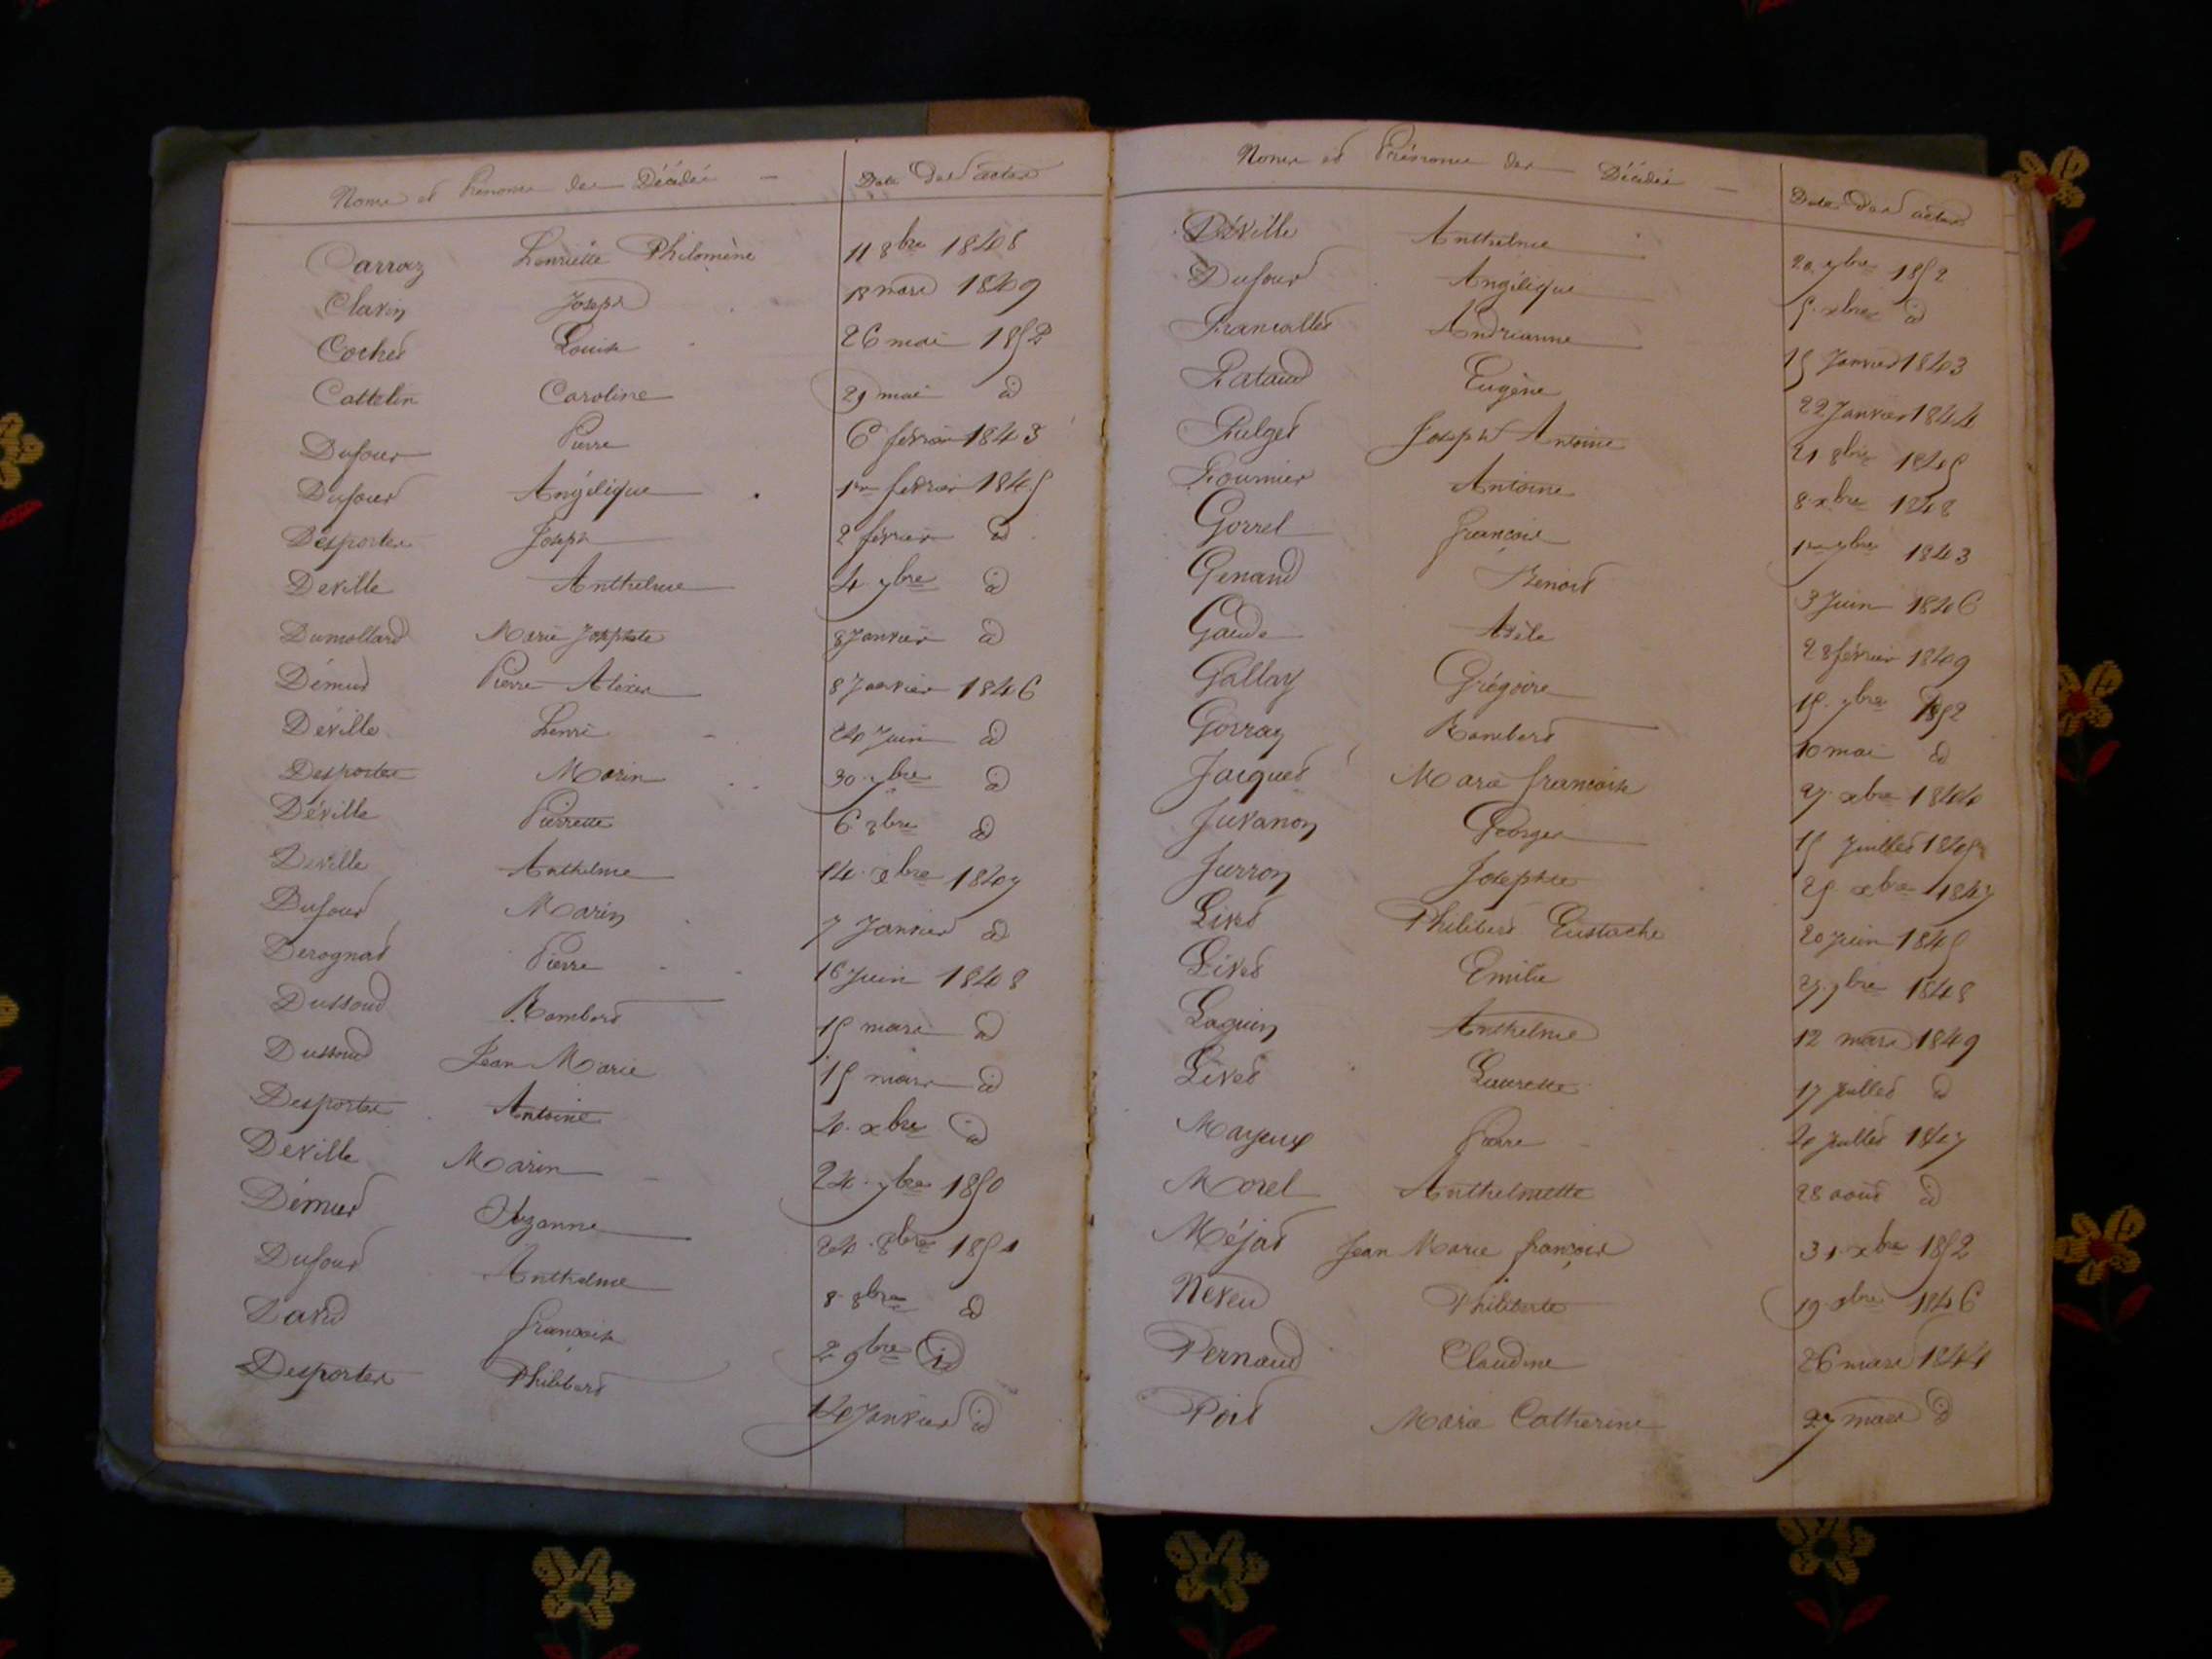 Noms et Prénoms des Décédés — Date des actes
Carraz Henriette Philomène 11 8bre 1848
Clavin Joseph 18 mars 1849
Cochet Louise 26 mai 1852
Cattelin Caroline 29 mai id
Dufour Pierre 6 février 1843
Dufour Angélique 1er février 1845
Desportes Joseph 2 février id
Deville Anthelme 4 7bre id
Dumollard Marie Josephte 8 Janvier id
Démur Pierre Alexis 8 Janvier 1846
Déville Henri 24 Juin id
Desportes Marin 30 7bre id
Déville Pierrette 6 8bre id
Deville Anthelme 14 xbre 1847
Dufour Marin 7 Janvier id
Derognat Pierre 16 Juin 1848
Dussoud Rambert 15 mars id
Dussoud Jean Marie 15 mars id
Desportes Antoine 4 xbre id
Deville Marin 24 7bre 1850
Démur Suzanne 24 8bre 1851
Dufour Anthelme 8 8bre id
David Françoise 2 9bre id
Desportes Philibert 14 Janvier id
Noms et Prénoms des Décédés — Date des actes
Déville Anthelme 20 7bre 1852
Dufour Angélique 5 xbre id
Francallet Andrianne 15 Janvier 1843
Fataud Eugène 22 Janvier 1844
Fulget Joseph Antoine 21 8bre 1845
Fournier Antoine 8 xbre 1848
Gorrel François 1er 7bre 1843
Genand Benoit 3 Juin 1846
Gaude Adèle 28 février 1849
Gallay Grégoire 15 7bre 1852
Gorraz Rambert 10 mai id
Jacquet Marie françoise 27 xbre 1844
Juvanon Georges 15 Juillet 1845
Jurron Josephte 25 xbre 1847
Livet Philibert Eustache 20 Juin 1845
Livet Emilie 27 9bre 1848
Laguin Anthelme 12 mars 1849
Livet Laurette 17 Juillet id
Mayeux Pierre 24 Juillet 1847
Morel Anthelmette 28 août id
Méjat Jean Marie françois 31 xbre 1852
Neveu Philiberte 19 xbre 1846
Pernaud Claudine 26 mars 1844
Poit Marie Catherine 27 mars id